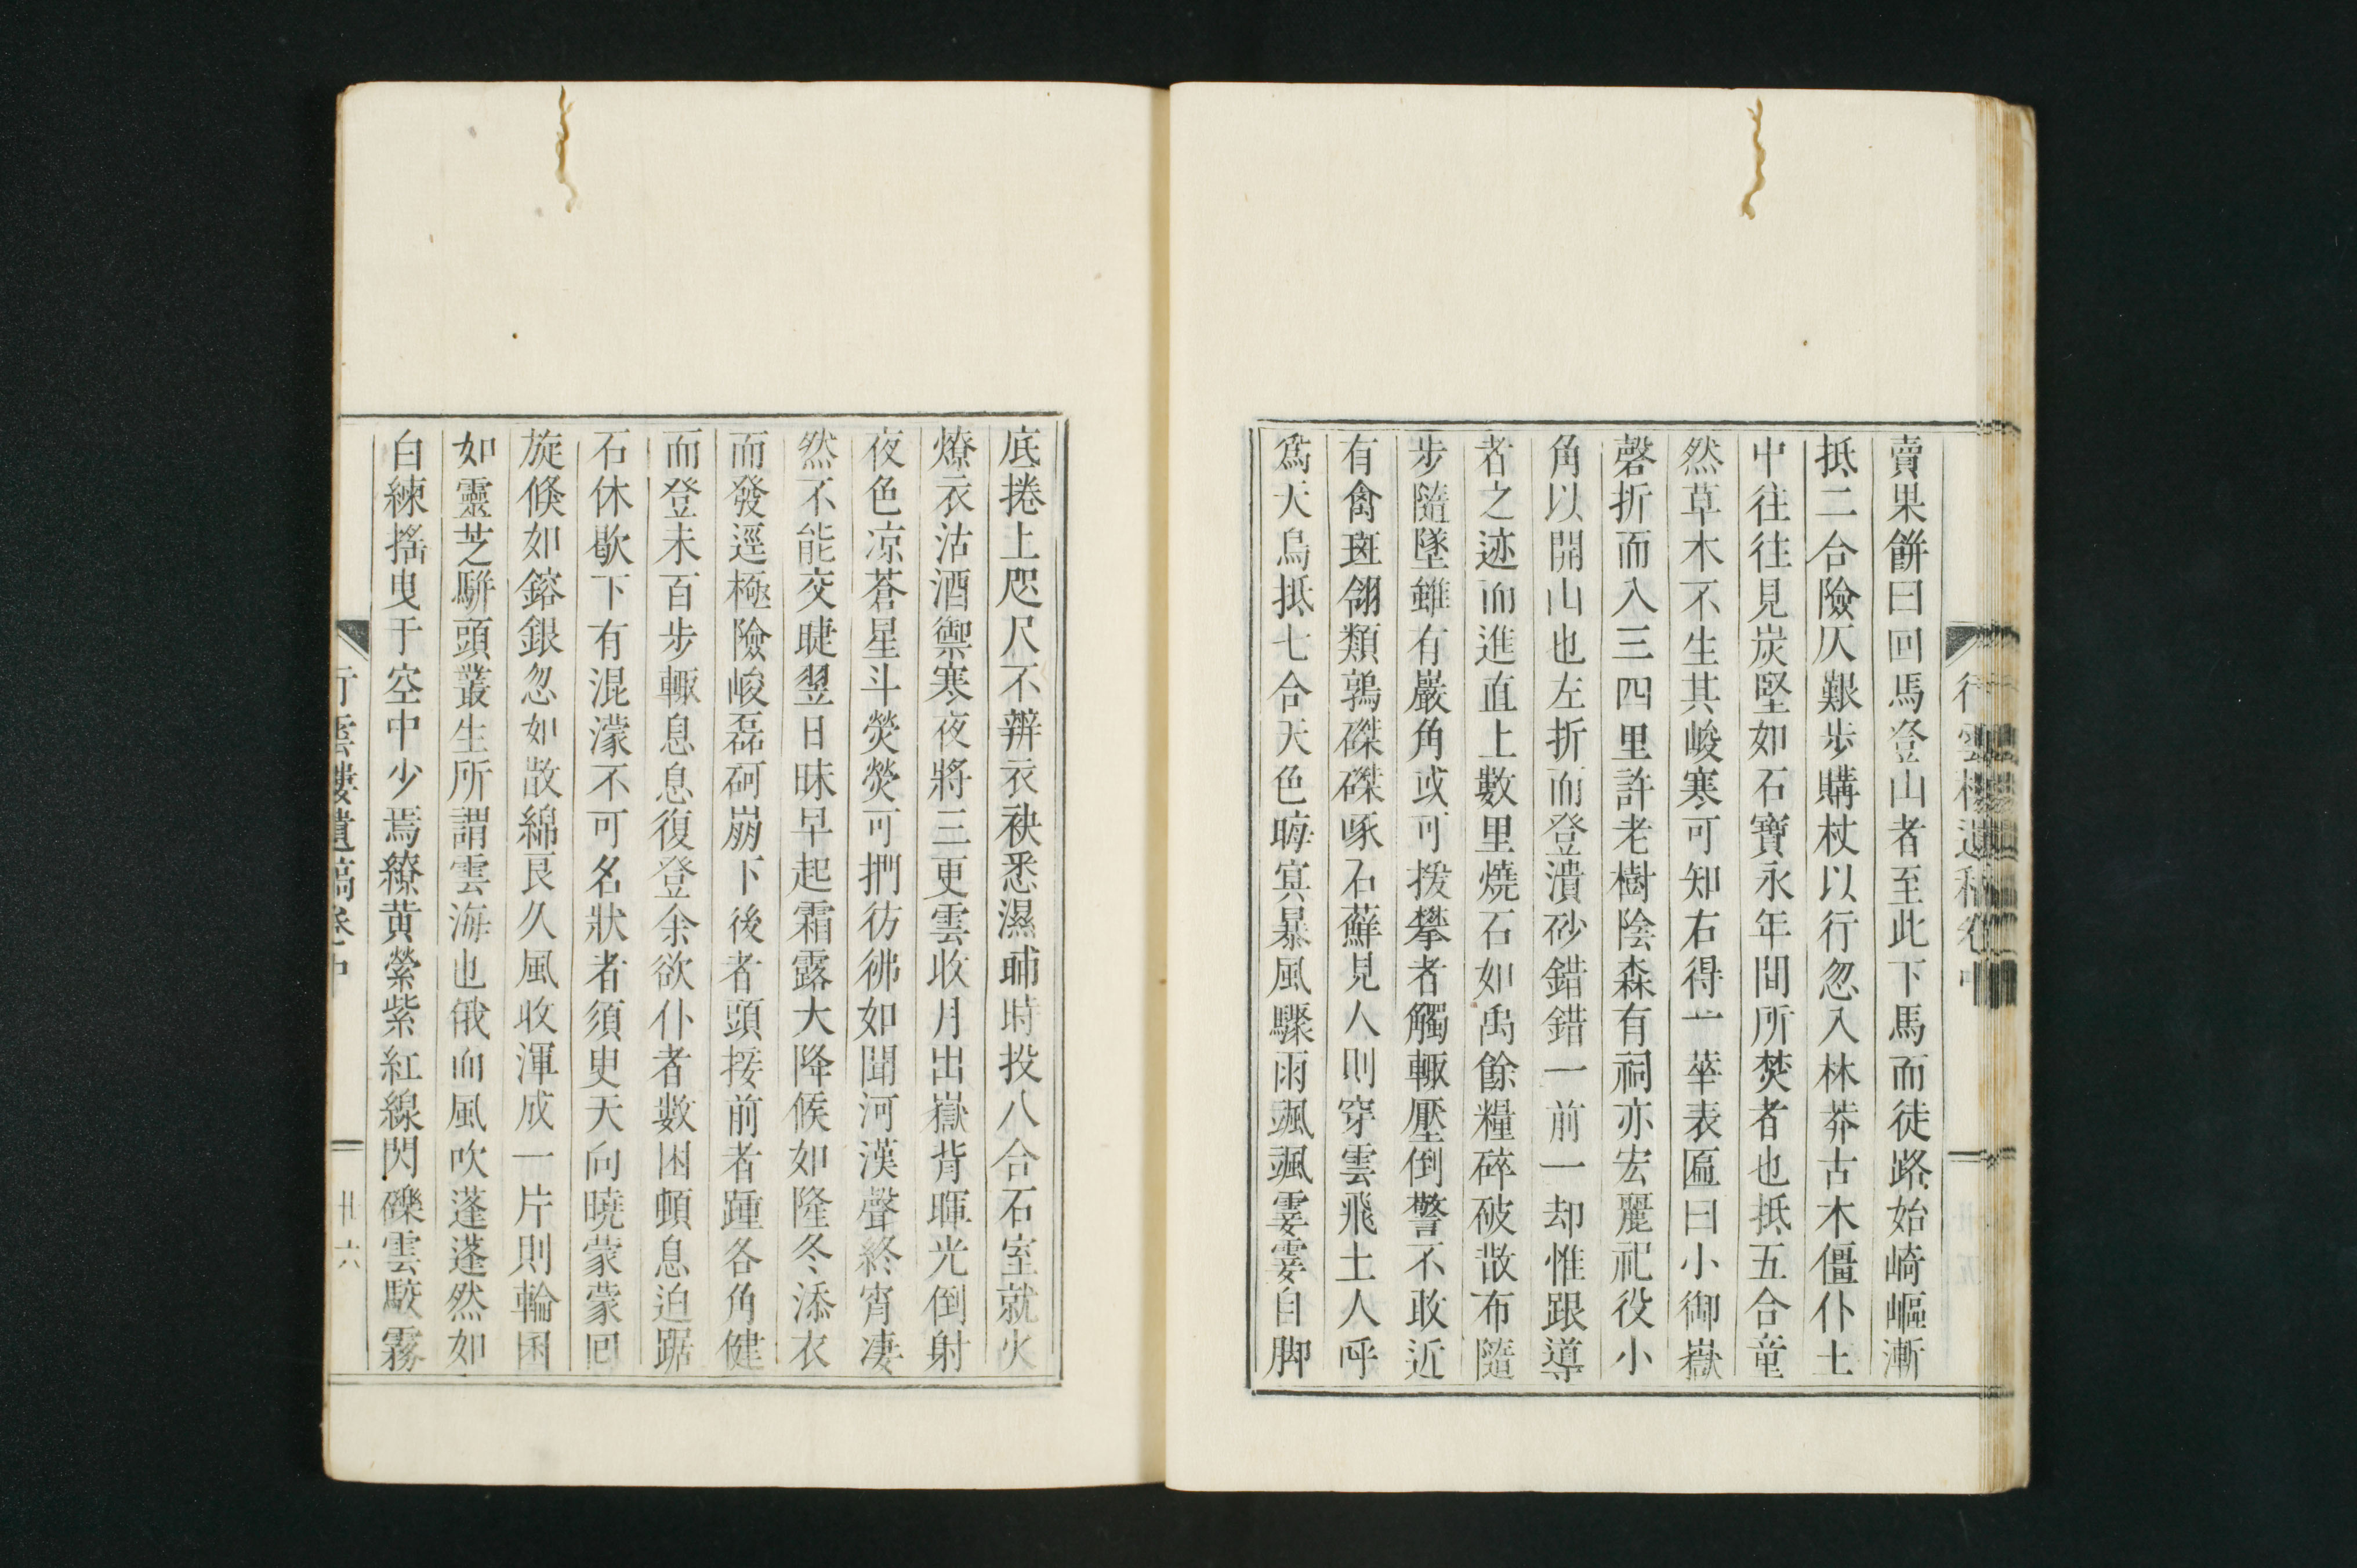 行雲樓遺稿卷中
賣果餅曰回馬登山者至此下馬而徒路始崎嶇漸
抵二合險仄艱步購杖以行忽入林莽古木僵仆土
中往往見炭堅如石寶永年間所焚者也抵五合童
然草木不生其峻寒可知右得一華表匾曰小御嶽
磬折而入三四里許老樹陰森有祠亦宏麗祀役小
角以開山也左折而登潰砂錯錯一前一却惟跟導
者之迹而進直上數里燒石如禹餘糧碎破散布隨
步隨墜雖有巖角或可援攀者觸輒壓倒警不敢近
有禽斑翎類鶉磔磔啄石蘚見人則穿雲飛土人呼
爲天鳥抵七合天色晦冥暴風驟雨颯颯霎霎自脚
底捲上咫尺不辨衣袂悉濕晡時投八合石室就火
燎衣沽酒禦寒夜將三更雲收月出嶽背暉光倒射
夜色凉蒼星斗熒熒可捫彷彿如聞河漢聲終宵凄
然不能交睫翌日昧早起霜露大降候如隆冬添衣
而發逕極險峻磊砢崩下後者頭接前者踵各角健
而登未百步輒息息復登余欲仆者數困頓息迫踞
石休歇下有混濛不可名狀者須臾天向曉蒙蒙回
旋倏如鎔銀忽如散綿艮久風收渾成一片則輪囷
如靈芝駢頭叢生所謂雲海也俄而風吹蓬蓬然如
白練搖曳于空中少焉繚黄縈紫紅線閃礫雲駮霧
行雲樓遺稿卷中
廿六